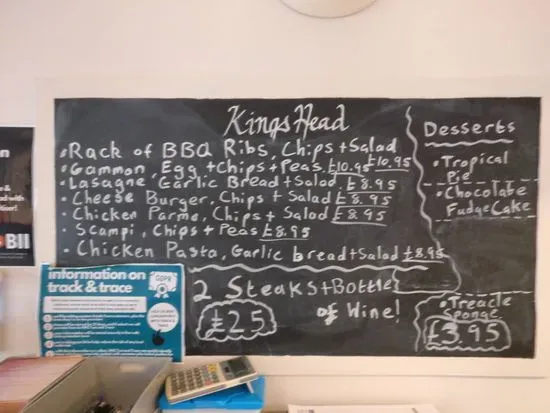 Kings Head
• Rack of BBQ Ribs, Chips + Salad £10.95
• Gammon, Egg + Chips + Peas £10.95
• Lasagne Garlic Bread + Salad £8.95
• Cheese Burger, Chips + Salad £8.95
• Chicken Parmo, Chips + Salad £8.95
• Scampi, Chips + Peas £8.95
• Chicken Pasta, Garlic bread + Salad £8.95
2 Steaks + Bottle
of Wine!
£25
Desserts
• Tropical
Pie
• Chocolate
Fudge Cake
• Treacle
Sponge
£3.95
information on
track & trace
GDPR
BII